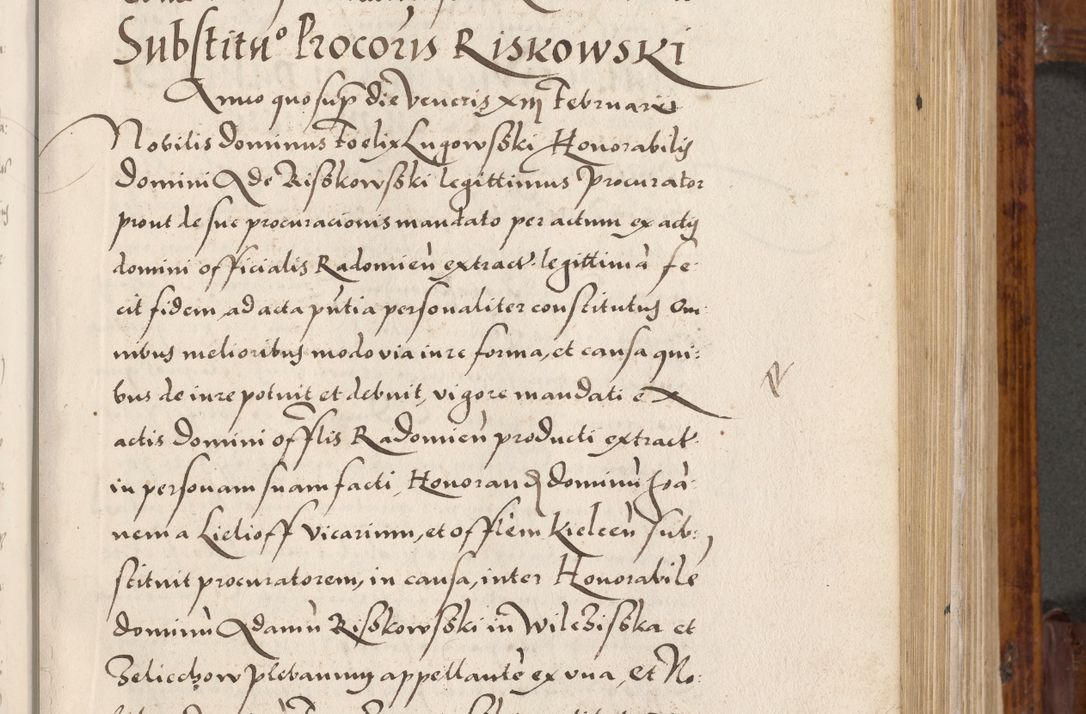 Substitu° Procoris Riskowski
Anno quo sup die Veneris xiij Februarii
Nobilis dominus Foelix Lugowsski Honorabilis
domini A de Risskowsski legittimus Procurator
prout de sue procuracionis mandato per actum ex actis
domini officialis Radomień extract. legittimā fe-
cit fidem ad acta pn̄tia personaliter constitutus Om-
nibus melioribus modo via iure forma, et causa qui:
bus de iure potuit et debuit, vigore mandati ex
actis domini offlis Radomień producti extract.
in personam suam facti, Honorand dominū Joā-
nem a Lielioff Vicarium, et offlēm Kielceń sub:
stituit procuratorem, in causa, inter Honorabilē
dominū Adamū Risskowsski in Wilczisska et
Zeliechow plebanum appellantē ex una, et No: